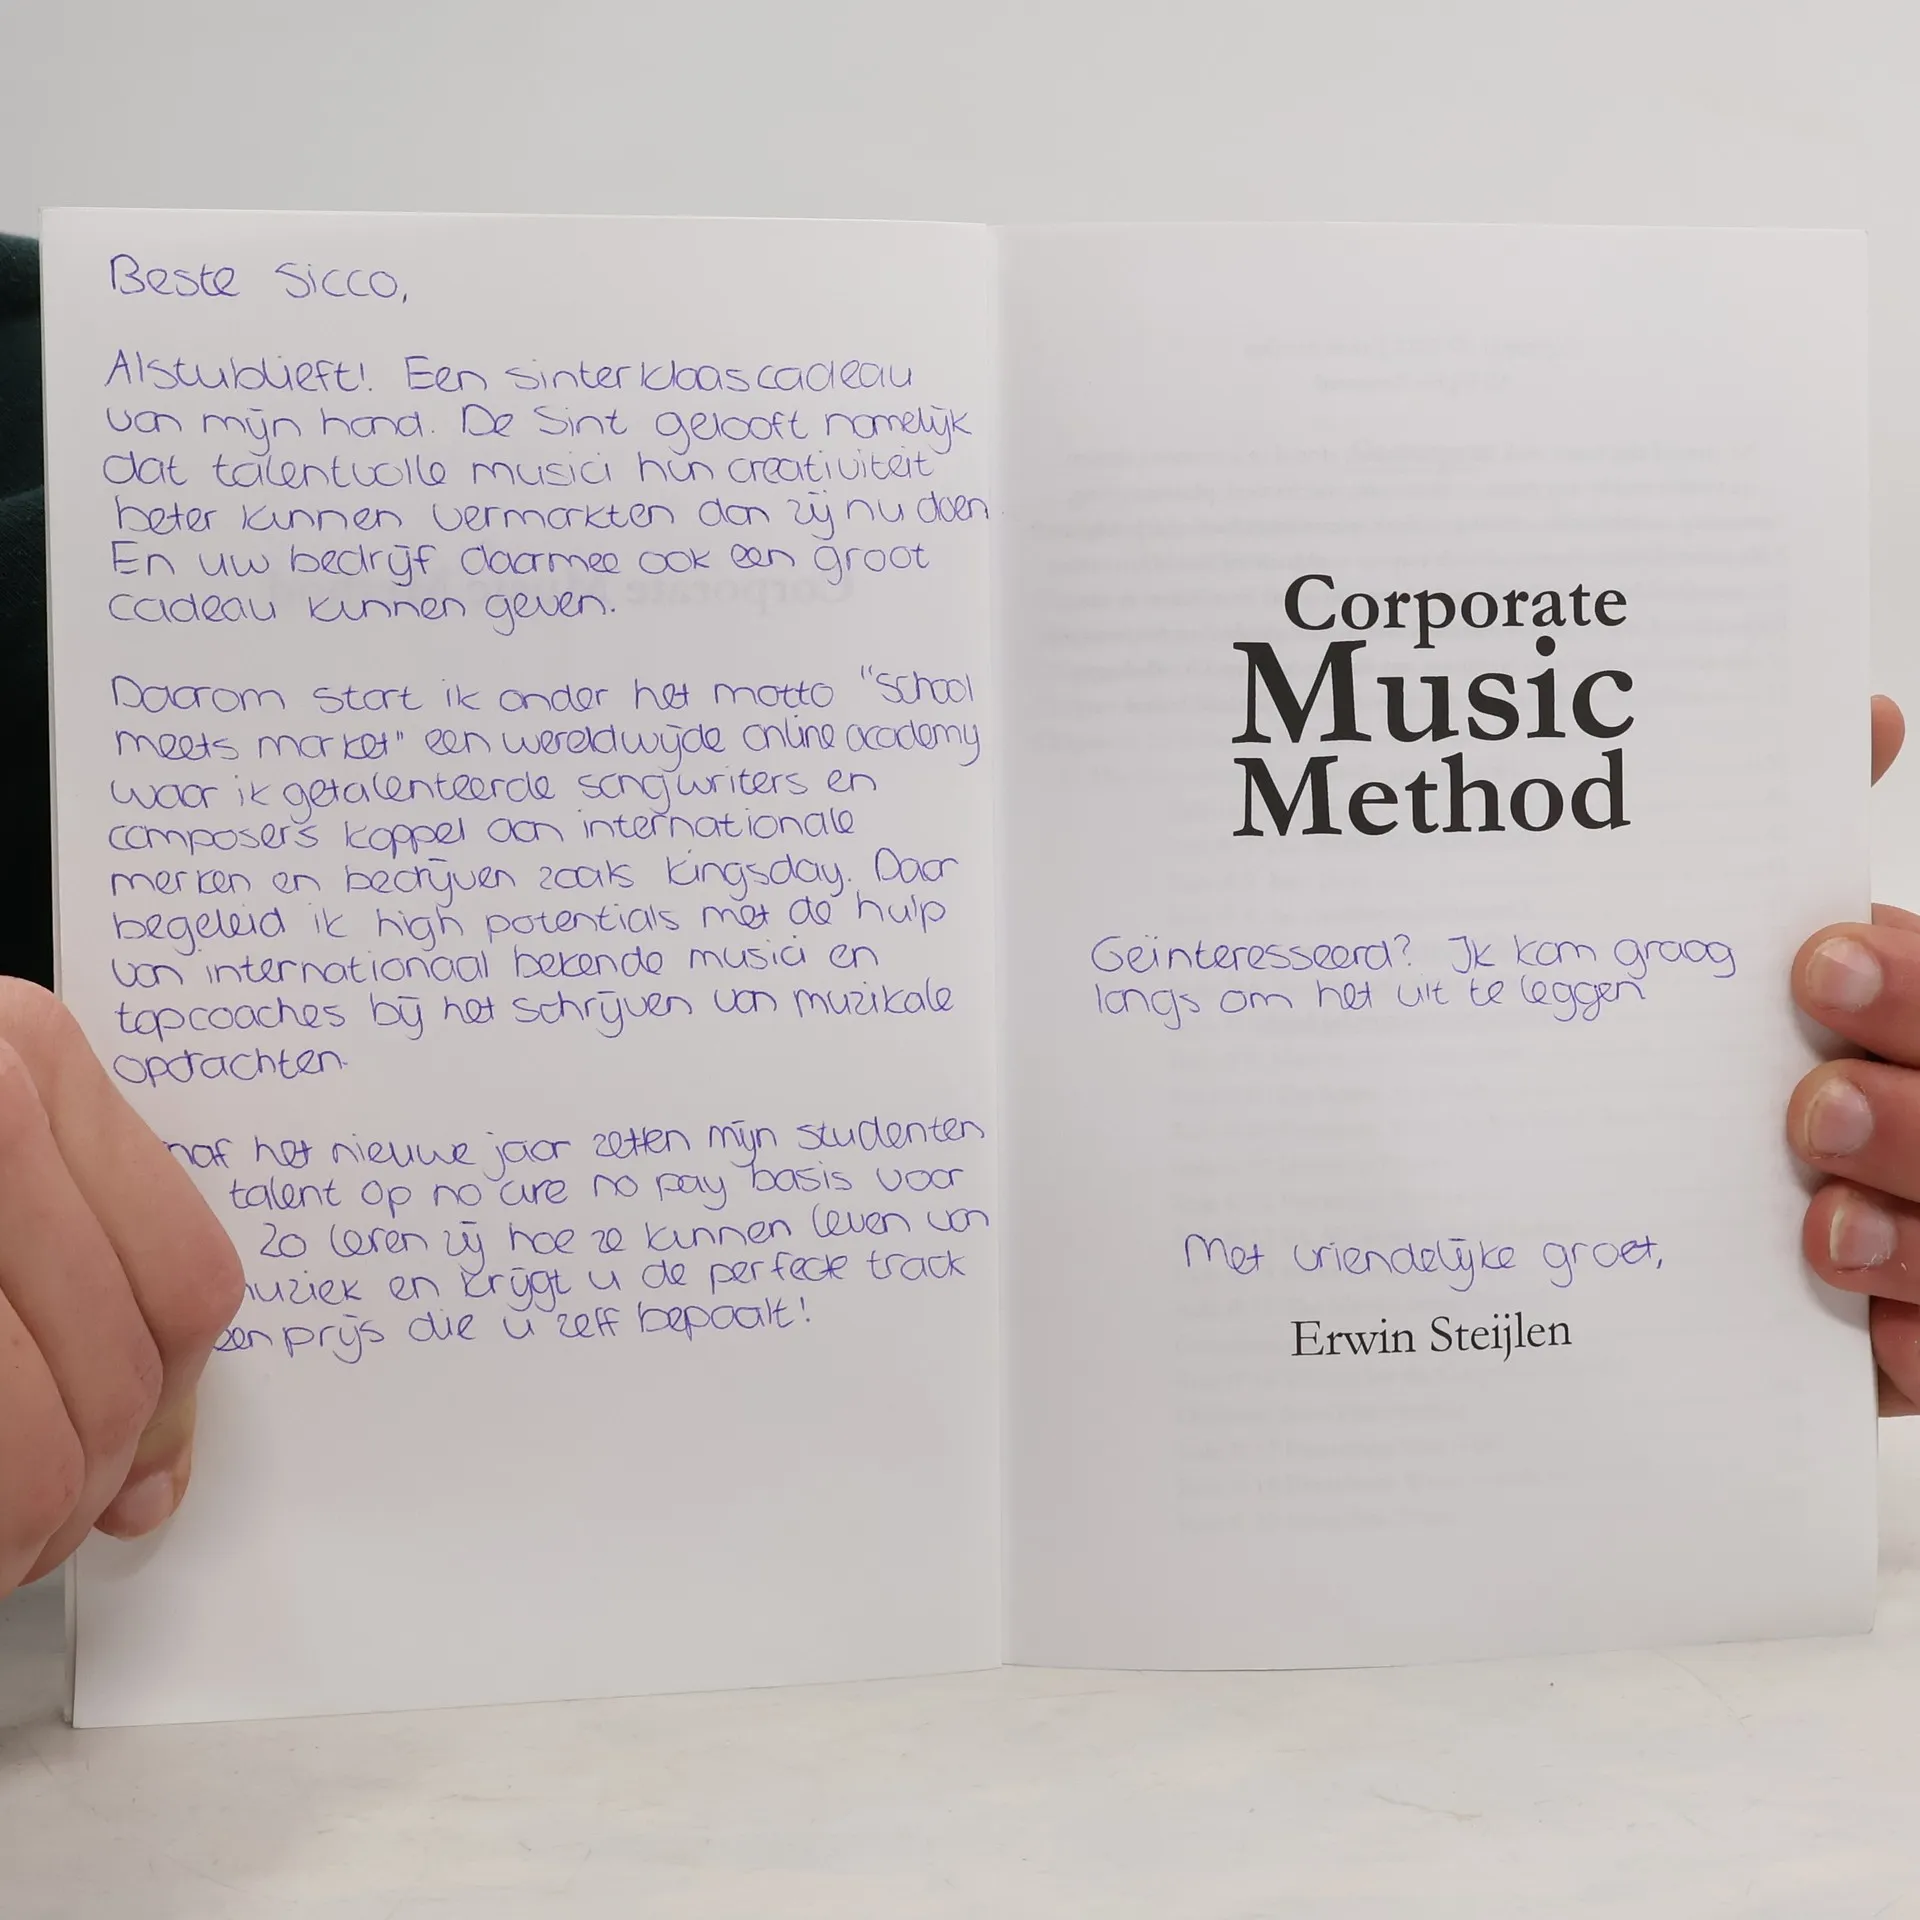 Beste Sicco,
Alstublieft! Een sinterklaascadeau
van mijn hand. De Sint gelooft namelijk
dat talentvolle musici hun creativiteit
beter kunnen vermarkten dan zij nu doen.
En uw bedrijf daarmee ook een groot
cadeau kunnen geven.
Daarom start ik onder het motto "school
meets market" een wereldwijde online academy
waar ik getalenteerde songwriters en
composers koppel aan internationale
merken en bedrijven zoals Kingsday. Daar
begeleid ik high potentials met de hulp
van internationaal bekende musici en
topcoaches bij het schrijven van muzikale
opdrachten.
naf het nieuwe jaar zetten mijn studenten
talent op no cure no pay basis voor
Zo leren zij hoe ze kunnen leven van
muziek en krijgt u de perfecte track
een prijs die u zelf bepaalt!
Corporate
Music
Method
Geïnteresseerd? Ik kom graag
langs om het uit te leggen
Met vriendelijke groet,
Erwin Steijlen